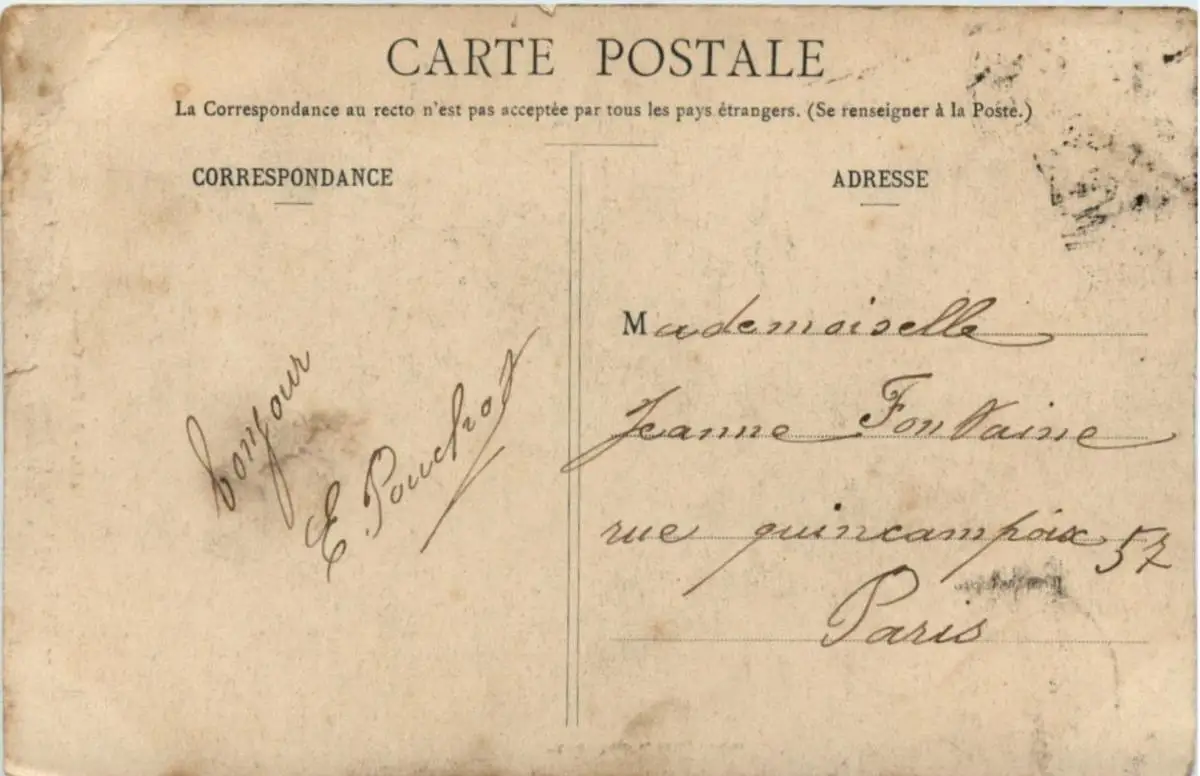 CARTE POSTALE
La Correspondance au recto n'est pas acceptée par tous les pays étrangers. (Se renseigner à la Poste.)
CORRESPONDANCE
bonjour
E. Pouchot
ADRESSE
Mademoiselle
Jeanne Fontaine
rue quincampoix 57
Paris